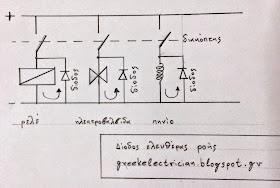 +
διακόπτης
δίοδος
δίοδος
δίοδος
-
ρελέ
ηλεκτροβαλβίδα
πηνίο
Δίοδος ελευθέρας ροής
greekelectrician.blogspot.gr